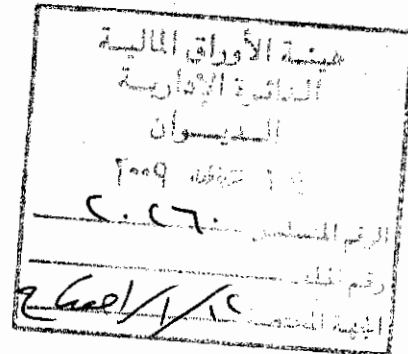 هيئة الأوراق المالية
الدائرة الإدارية
الديوان
٢٠٠٩
الرقم المتسلسل ٢٠٢٦٠
رقم الملف
الجهة المختصة